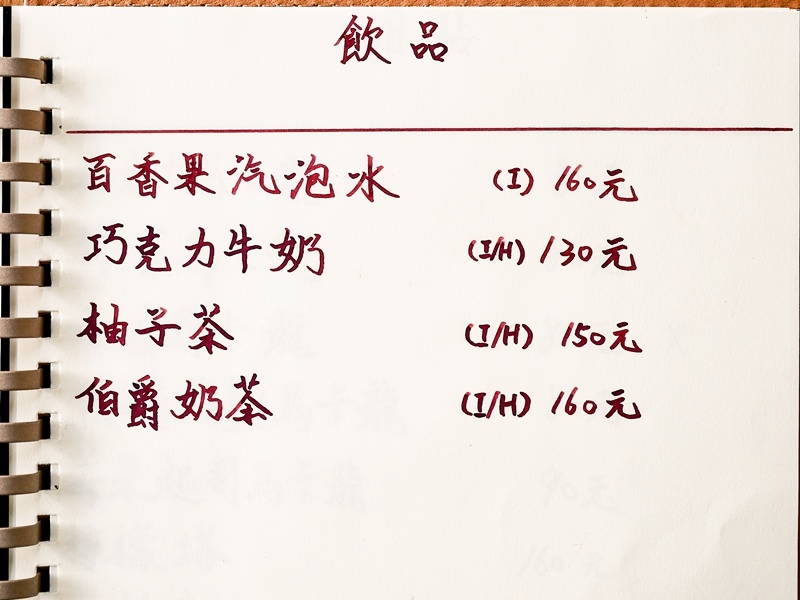 飲品
百香果汽泡水 (I) 160元
巧克力牛奶 (I/H) 130元
柚子茶 (I/H) 150元
伯爵奶茶 (I/H) 160元